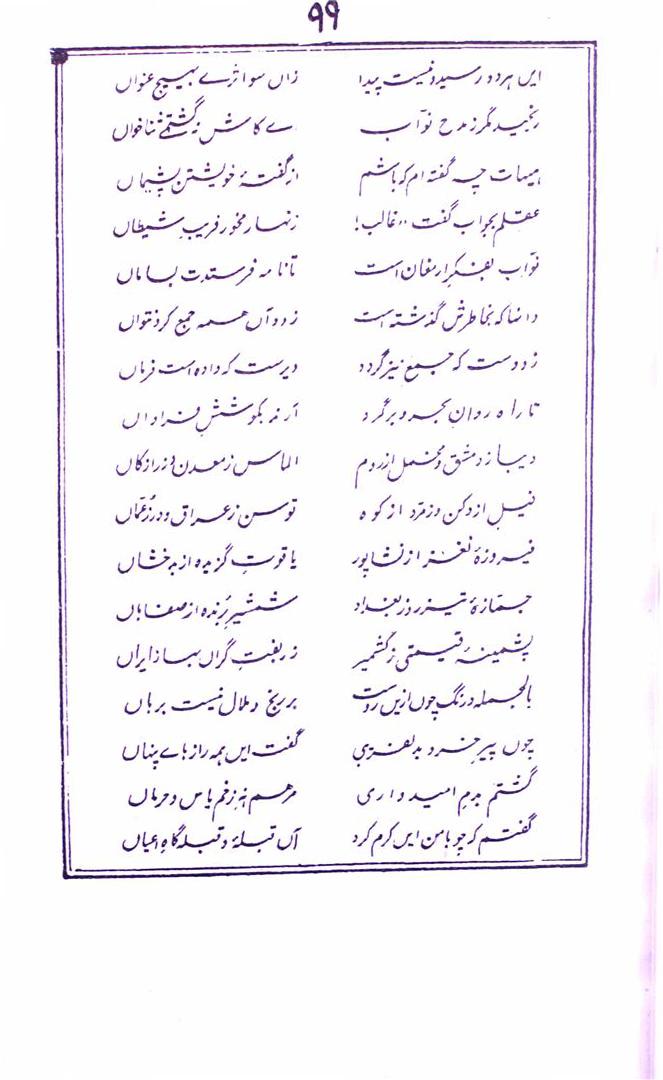 ۹۹
ایں ہر دو رسید و نیست پیدا زاں سو اثرے بہیچ عنواں
رنجید مگر ز مدح نوّاب اے کاش نگشتمے ثناخواں
ہیہات چہ گفتہ ام کہ باشم از گفتۂ خویشتن پشیماں
عقلم بجواب گفت ،،غالب! زنہار مخور فریبِ شیطاں
نوّاب بفکرِ ارمغان است تا نامہ فرستدت بساماں
دانا کہ بخاطرش گذشته است زود آں ہمہ جمع کرد نتواں
زودست کہ جمع نیز گردد دیرست کہ داده است فرماں
تا راه روانِ بحر و بر گرد آرند بکوششِ فراواں
دیبا ز دمشق و مخمل از روم الماس ز معدن و زر از کاں
فیل از دکن و زمرّد از کوه توسن ز عراق و در ز عمّاں
فیروزۂ نغز از نشاپور یاقوتِ گزیده از بدخشاں
جمّازۂ تیز رو ز بغداد شمشیرِ بُرنده از صفاہاں
پشمینۂ قیمتی ز کشمیر زربفتِ گراں بہا ز ایراں
بالجملہ درنگ چوں ازیں روست بر رنج و ملال نیست برہاں
چوں پیرِ خرد بدلفریبی گفت ایں ہمہ رازہاے پنہاں
گشتم بدمِ امیدواری مرہم نہِ زخمِ یاس و حرماں
گفتم کہ چو با من ایں کرم کرد آں قبلہ و قبلہ گاہِ اعیاں